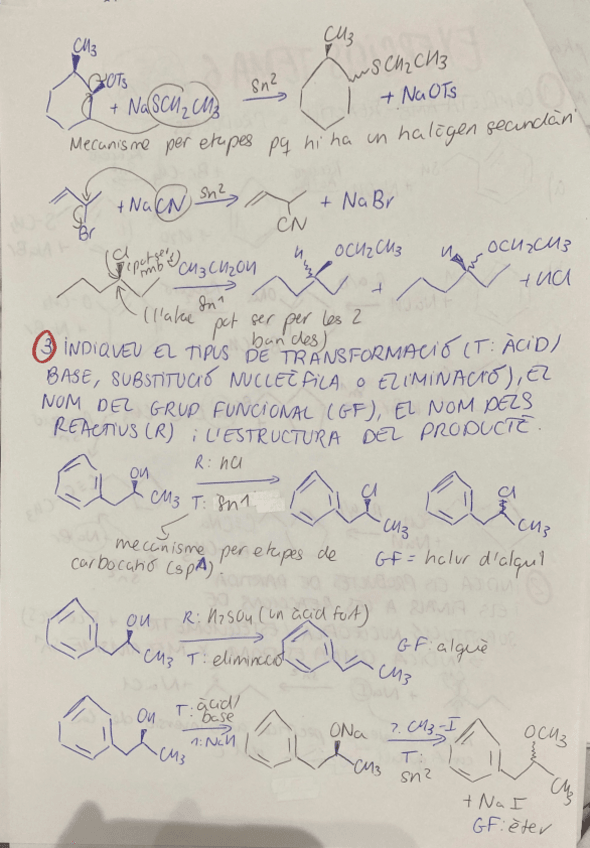 CH3
OTs
+ NaSCH2CH3
Sn2
CH3
SCH2CH3
+ NaOTs
Mecanisme per etapes pq hi ha un halògen secundàri
Br
+ NaCN
Sn2
CN
+ NaBr
Cl
(pot ser
CH3CH2OH
Sn1
H
OCH2CH3
+
H
OCH2CH3
+ HCl
(l'atac pot ser per les 2
bandes)
3 INDIQUEU EL TIPUS DE TRANSFORMACIÓ (T: ÀCID/
BASE, SUBSTITUCIÓ NUCLEÒFILA O ELIMINACIÓ), EL
NOM DEL GRUP FUNCIONAL (GF), EL NOM DELS
REACTIUS (R) i L'ESTRUCTURA DEL PRODUCTE.
OH
CH3
R: HCl
T: Sn1
Cl
CH3
Cl
CH3
mecanisme per etapes de
carbocatió
GF = halur d'alquil
OH
CH3
R: H2SO4 (un àcid fort)
T: eliminació
CH3
GF: alquè
OH
CH3
T: àcid/
base
1: NaH
ONa
CH3
2. CH3-I
T:
Sn2
OCH3
CH3
+ NaI
GF: èter